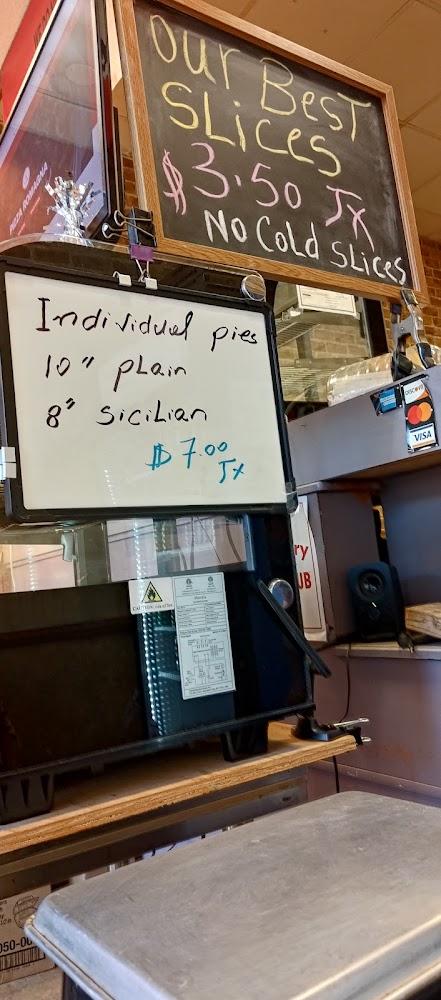 OUR BEST
SLICES
$3.50 TX
NO COLD SLICES
Individual pies
10" plain
8" sicilian
$7.00
Tx
DISCOVER
VISA
CAUTION
ry
UB
050-00